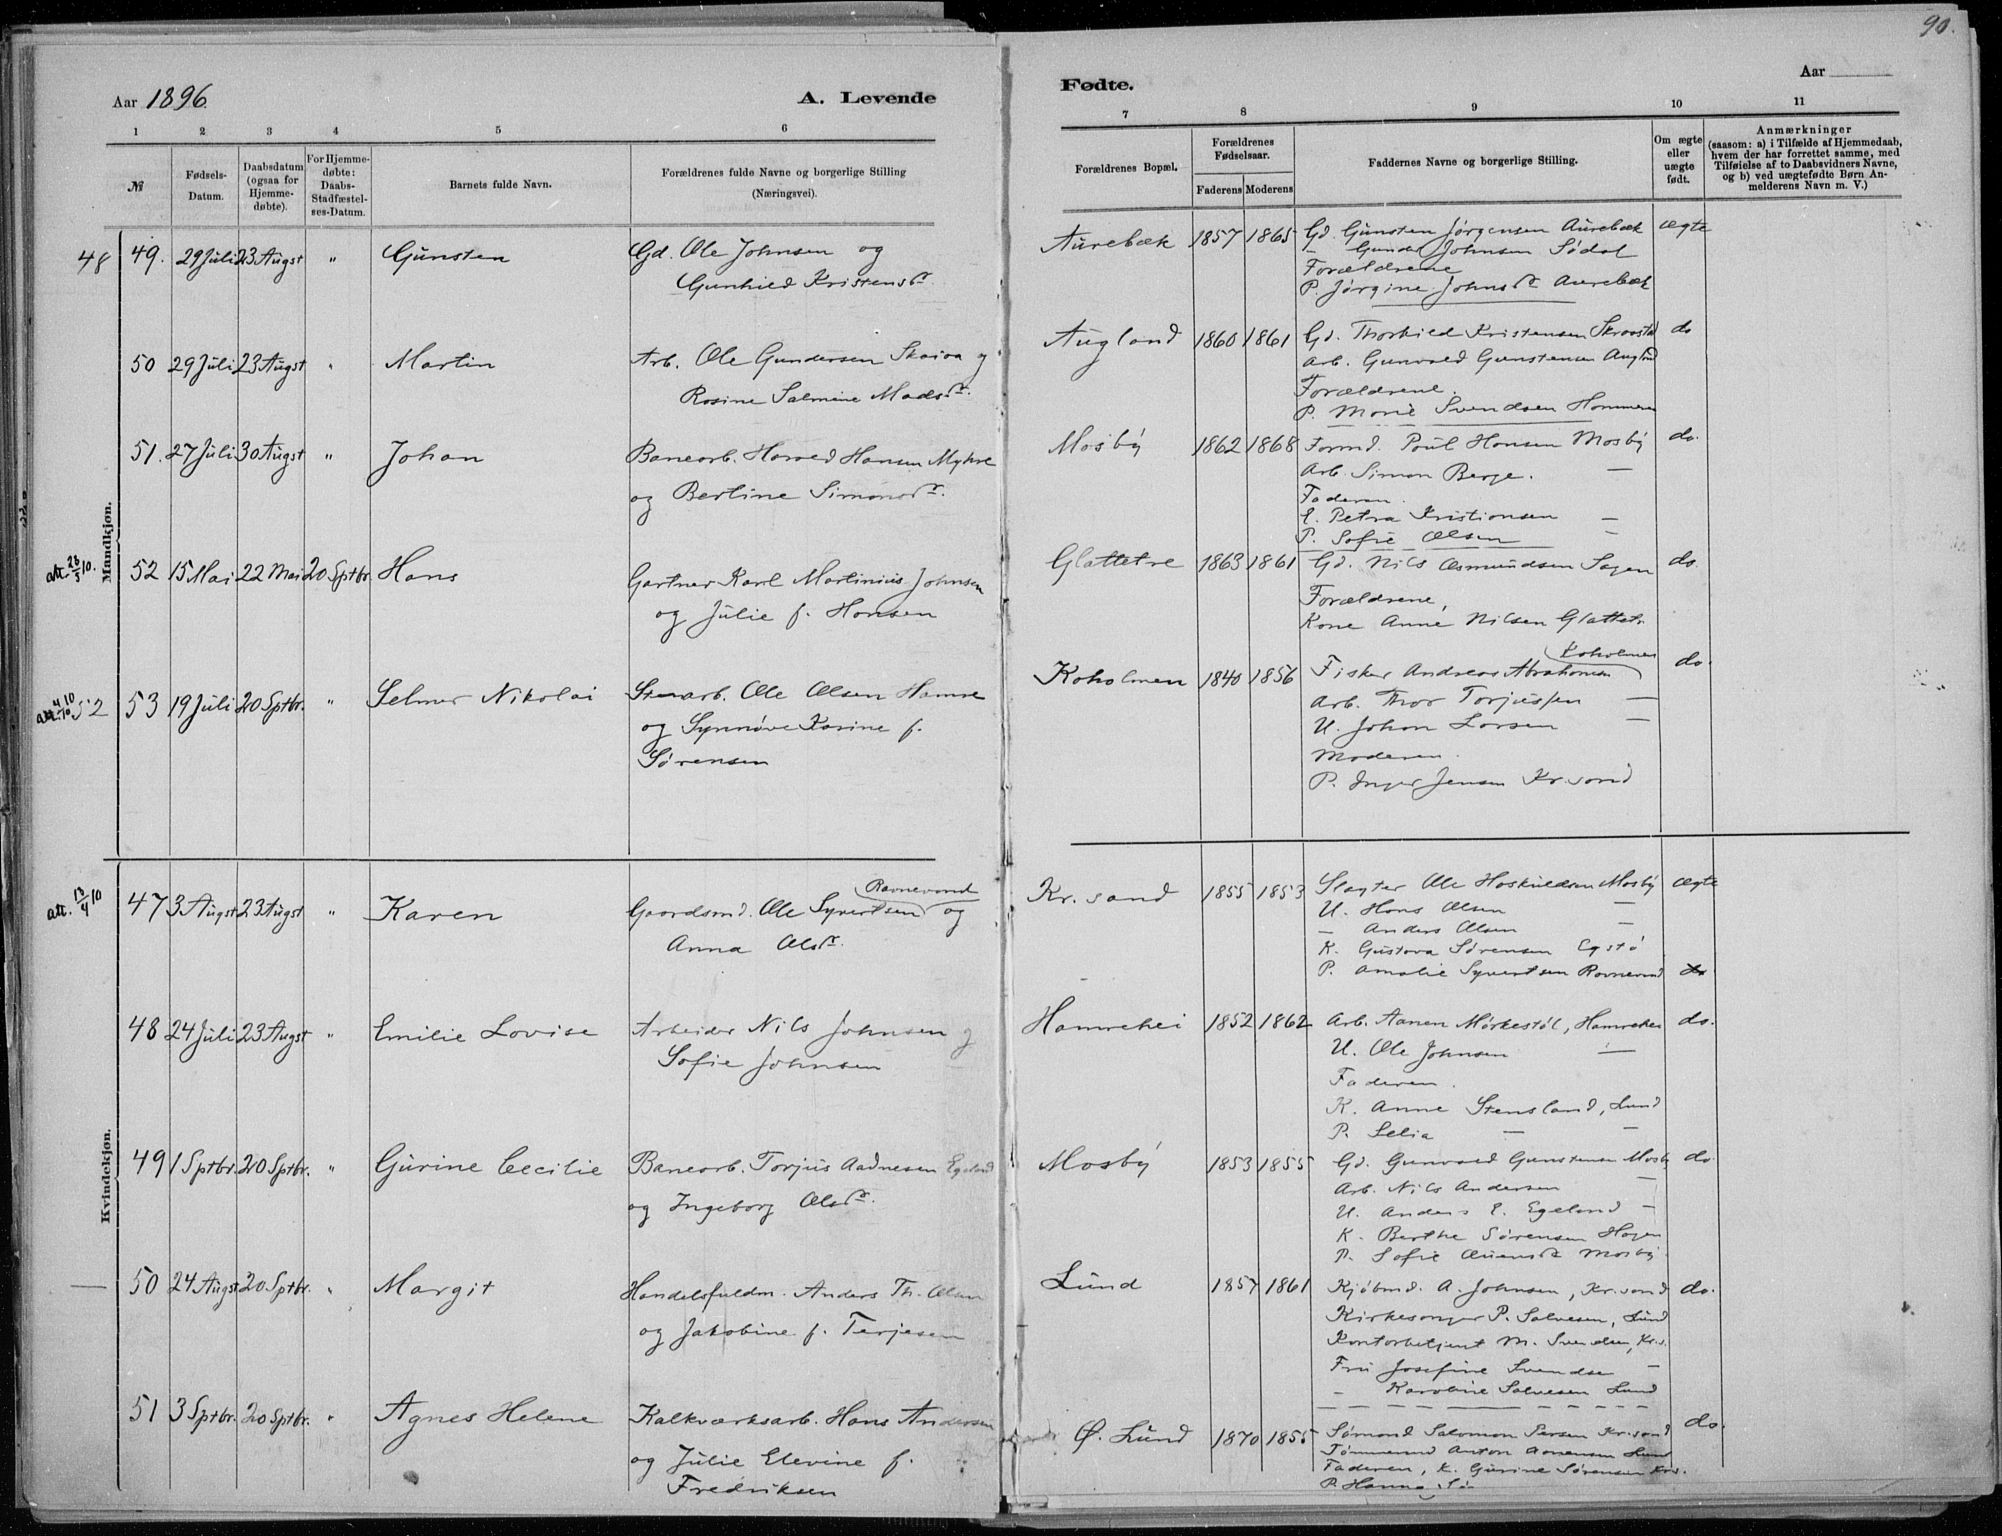 90.
Aar 1896.
A. Levende
Fødte.
Aar
1 2 3 4 5 6
7 8 9 10 11
№
Fødsels-Datum.
Daabsdatum (ogsaa for Hjemme-døbte).
For Hjemme-døbte: Daabs-Stadfæstel-ses-Datum.
Barnets fulde Navn.
Forældrenes fulde Navne og borgerlige Stilling
(Næringsvei).
Forældrenes Bopæl.
Forældrenes Fødselsaar.
Faderens Moderens
Faddernes Navne og borgerlige Stilling.
Om ægte eller uægte født.
Anmærkninger
(saasom: a) i Tilfælde af Hjemmedaab,
hvem der har forrettet samme, med
Tilføielse af to Daabsvidners Navne,
og b) ved uægtefødte Børn An-
melderens Navn m. V.)
Mandkjøn.
48 49. 29 Juli 23 Augst " Gunsten
Gd. Ole Johnsen og
Gunhild Kristensdr.
Aurebæk 1857 1865
Gd. Gunsten Jørgensen Aurebæk ægte
— Gunder Johnsen Sødal
Forældrene
P. Jørgine Johnsdr Aurebæk
50 29 Juli 23 Augst " Martin
Arb. Ole Gundersen Skaiaa og
Rosine Salmine Madsdr.
Augland 1860 1861
Gd. Thorkild Kristensen do
Arb. Gunvald Gunstensen Augland
Forældrene.
P. Marie Svendsen Hommeren
51. 27 Juli 30 Augst " Johan
Banearb. Harald Hansen Myhre
og Berline Simonsdr.
Mosby 1862 1868
Formd. Poul Hansen Mosby do.
Arb. Simon Berge. —
Faderen.
E. Petra Kristiansen —
P. Sofie Olsen —
att. 28/3 10. 52 15 Mai 22 Mai 20 Sptbr. Hans
Gartner Karl Martinius Johnsen
og Julie f. Hansen
Glattetre 1863 1861
Gd. Nils Asmundsen Sagen do.
Forældrene,
Kone Anne Nilsen Glattetr.
52 53 19 Juli 20 Sptbr. " Selmer Nikolai
Stenarb. Ole Olsen Hamre
og Synnøve Karine f.
Sørensen
Koholmen 1840 1856
Koholmen
Fisker Andreas Abrahamsen do.
Arb. Thor Torjussen —
U. Johan Larsen —
Moderen.
P. Inger Jensen Kr.sand
Kvindekjøn.
att. 13/4 10 47 3 Augst 23 Augst " Karen
Ravnevand
Gaardsmd. Ole Syvertsen og
Anna Olsdr.
Kr.sand 1855 1853
Slagter Ole Haskuldsen Mosby ægte
U. Hans Olsen —
— Anders Olsen —
K. Gustava Sørensen Egstø
P. Amalie Syvertsen Ravnevand do
48 24 Juli 23 Augst " Emilie Lovise
Arbeider Nils Johnsen og
Sofie Johnsen
Hamrehei 1852 1862
Arb. Aanen Mørkestøl, Hamrehei do.
U. Ole Johnsen —
Faderen.
K. Anne Stensland, Lund
P. Selia — —
49 1 Sptbr. 20 Sptbr. " Gurine Cecilie
Banearb. Torjus Aadnesen Egeland
og Ingeborg Olsdr.
Mosby 1853 1855
Gd. Gunvald Gunstensen Mosby do
Arb. Nils Andersen —
U. Anders E. Egeland —
K. Berthe Sørensen Hagen
P. Sofie Mosby.
50 24 Augst 20 Sptbr. " Margit
Handelsfuldm. Anders Th. Olsen
og Jakobine f. Terjesen
Lund 1857 1861
Kjøbmd. A. Johnsen, Kr.sand do.
Kirkesanger P. Salvesen, Lund
Kontorbetjent M. Svendsen, Kr.s.
Fru Josefine Svendsen —
— Karoline Salvesen Lund
51 3 Sptbr. 20 Sptbr. " Agnes Helene
Kalkværksarb. Hans Andersen
og Julie Elevine f.
Fredriksen
Ø. Lund 1870 1855
Sømand Salomon Kr.sand do.
Tømmermd Anton Aanensen Lund
Faderen, K. Gurine Sørensen Krs.
P. Hanna